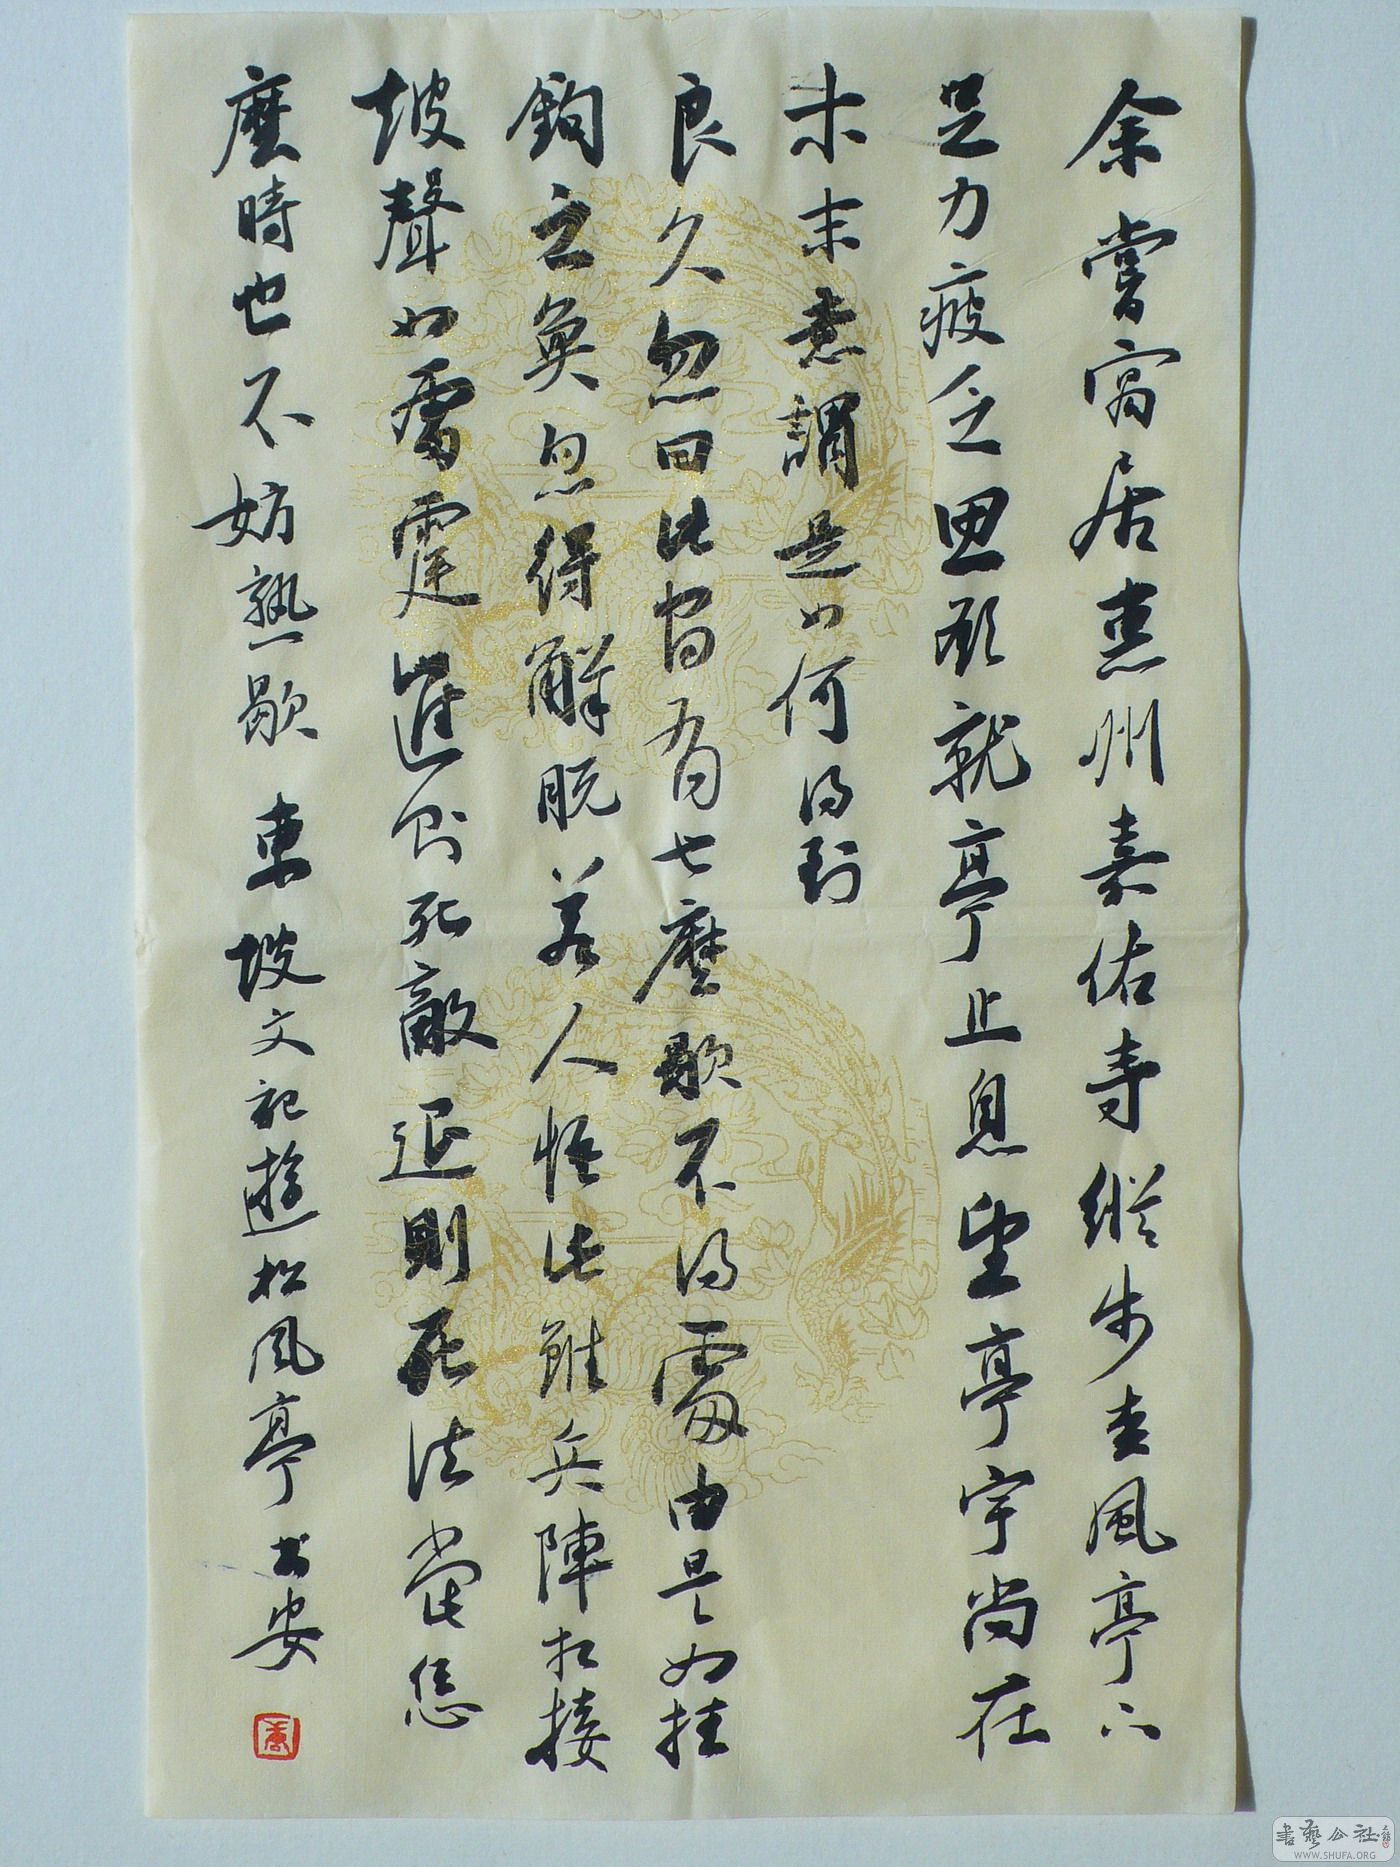 余嘗寓居惠州嘉佑寺縱步松風亭下
足力疲乏思欲就亭止息望亭宇尚在
木末意謂是如何得到
良久忽曰此間有甚麼歇不得處由是如挂
鉤之魚忽得解脫若人悟此雖兵陣相接
鼓聲如雷霆進則死敵退則死法當恁
麼時也不妨熟歇 東坡文記遊松風亭 書安
書藝公社
WWW.SHUFA.ORG